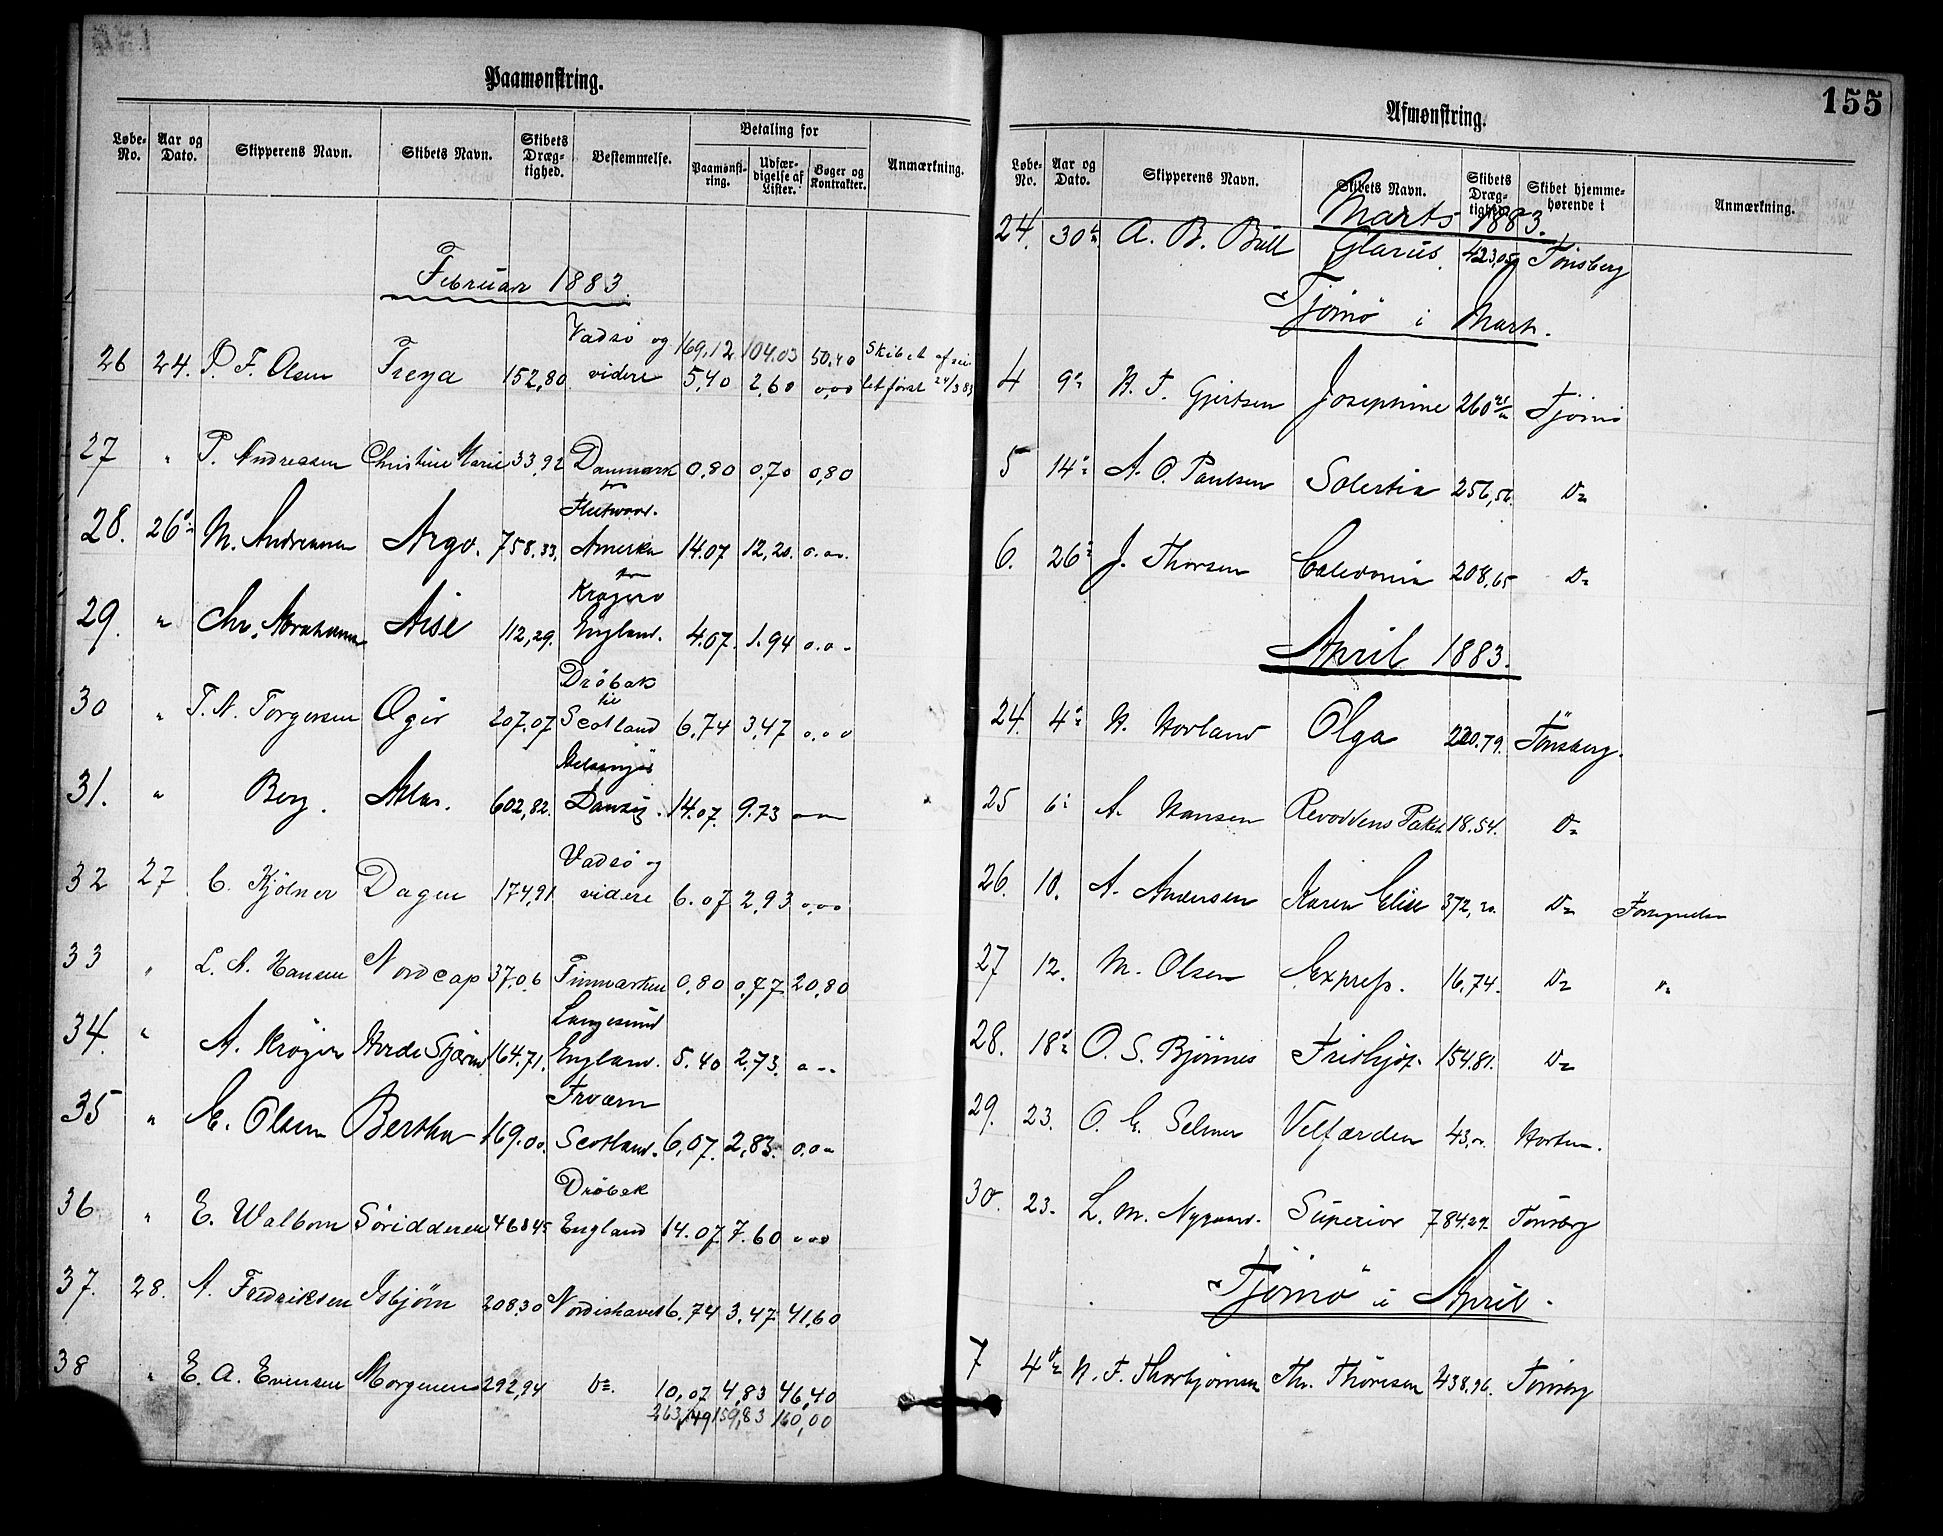 Paamønstring.
Løbe-No. Aar og Dato. Skipperens Navn. Skibets Navn. Skibets Dræg-tighed. Bestemmelse. Betaling for Paamønst-ring. Udfær-digelse af Lister. Bøger og Kontrakter. Anmærkning.
Februar 1883.
Vadsö og 169,12 104.03 50,40 Skibet afsei-
26 24. P. F. Olsen Freya 152,80 videre 5,40 2,60 0,00 let först 24/3 83
27 " P. Andreasen Christine Marie 33,92 Danmark 0,80 0,70 0,80
fra Fleetwood.
28. 26 N. Andreasen Argo. 758.33, Amerika 14.07 12,20.
fra Kragerø
29. " Chr. Abrahamsen Aise 112,29. England. 4.07. 1.94
Dröbak til
30 " T. A. Torgersen Ogir 207.07 Scotland 6,74 3,47
31. " Berg. Atlas. 602,82. Danzig. 14.07. 9.73
Vadsö og
32 27 C. Kjölner Dagen 174,91 videre 6.07 2,93 0,00
33 " L. A. Hansen Nordcap 37.06 Finmarken 0,80 0,77 20,80
Langesund
34. " A. Kröger 164.71. England. 5.40 2,73.
Fruværn
35 " E. Olsen Bertha 169.00. Scotland. 6,07. 2,83.
Dröbak
36 " E. Walbom Söridderen 468 45 England 14.07 7.60
37. 28. A. Fredriksen Isbjörn 208.30 Nordishavet 6,74 3,47 41,60
38 " E. A. Evensen Morgenen 292,94 Do. 10,07 4,83 46,40
263,49 159,83 160,00
155
Afmønstring.
Løbe-No. Aar og Dato. Skipperens Navn. Skibets Navn. Skibets Dræg-tighed. Skibet hjemme-hørende i Anmærkning.
Marts 1883.
24. 30 A. B. Bull Glarus. 423,05 Tönsberg
Tjömö i Marts.
4 9 H. F. Gjertsen Josephine 260 Tjömö
5 14 A. O. Paulsen Solertia 256,56. Do
6. 26 J. Thorsen Caledonia 208,65 Do
April 1883.
24. 4 H. Hovland Olga 220.79. Tönsberg.
25 6 A. Hansen Revoddens Paket 18.54. Do
26. 10. A. Andersen Karen Elise 372,20. Do
27 12. M. Olsen Express. 16,74. Do "
28. 18 O. S. Bjönnes Frithjof. 154.81. Do
29. 23. O. E. Selmer Velfærden 43, Horten.
30. 23. L. M. Nygaard. Superior 784.29. Tönsberg
Tjömö i April.
7 4 N. F. Thorbjörnsen Thv. Thöresen 438.96. Tönsberg